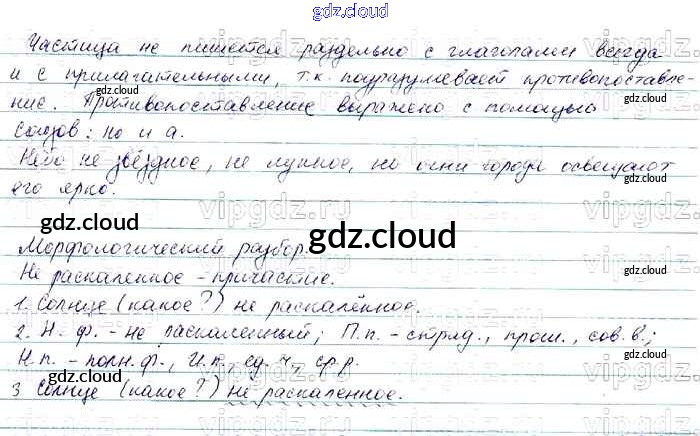 gdz.cloud
Частица не пишется раздельно с глаголами всегда
и с прилагательными, т.к. подразумевает противопоставле-
ние. Противопоставление выражено с помощью
союзов: но и а.
Небо не звёздное, не лунное, но огни города освещают
его ярко.
gdz.cloud
Морфологический разбор.
Не раскаленное - причастие.
1. Солнце (какое?) не раскалённое.
2. Н. ф. - не раскаленный; П.п. - страд., прош., сов.в.;
Н.п. - полн.ф., И.п., ед.ч., ср.р.
3 Солнце (какое?) не раскаленное.